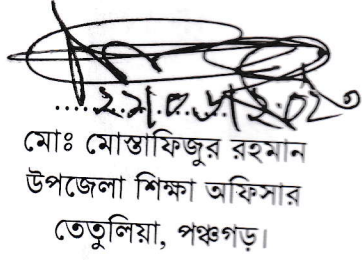 মোঃ মোস্তাফিজুর রহমান
উপজেলা শিক্ষা অফিসার
তেতুলিয়া, পঞ্চগড়।